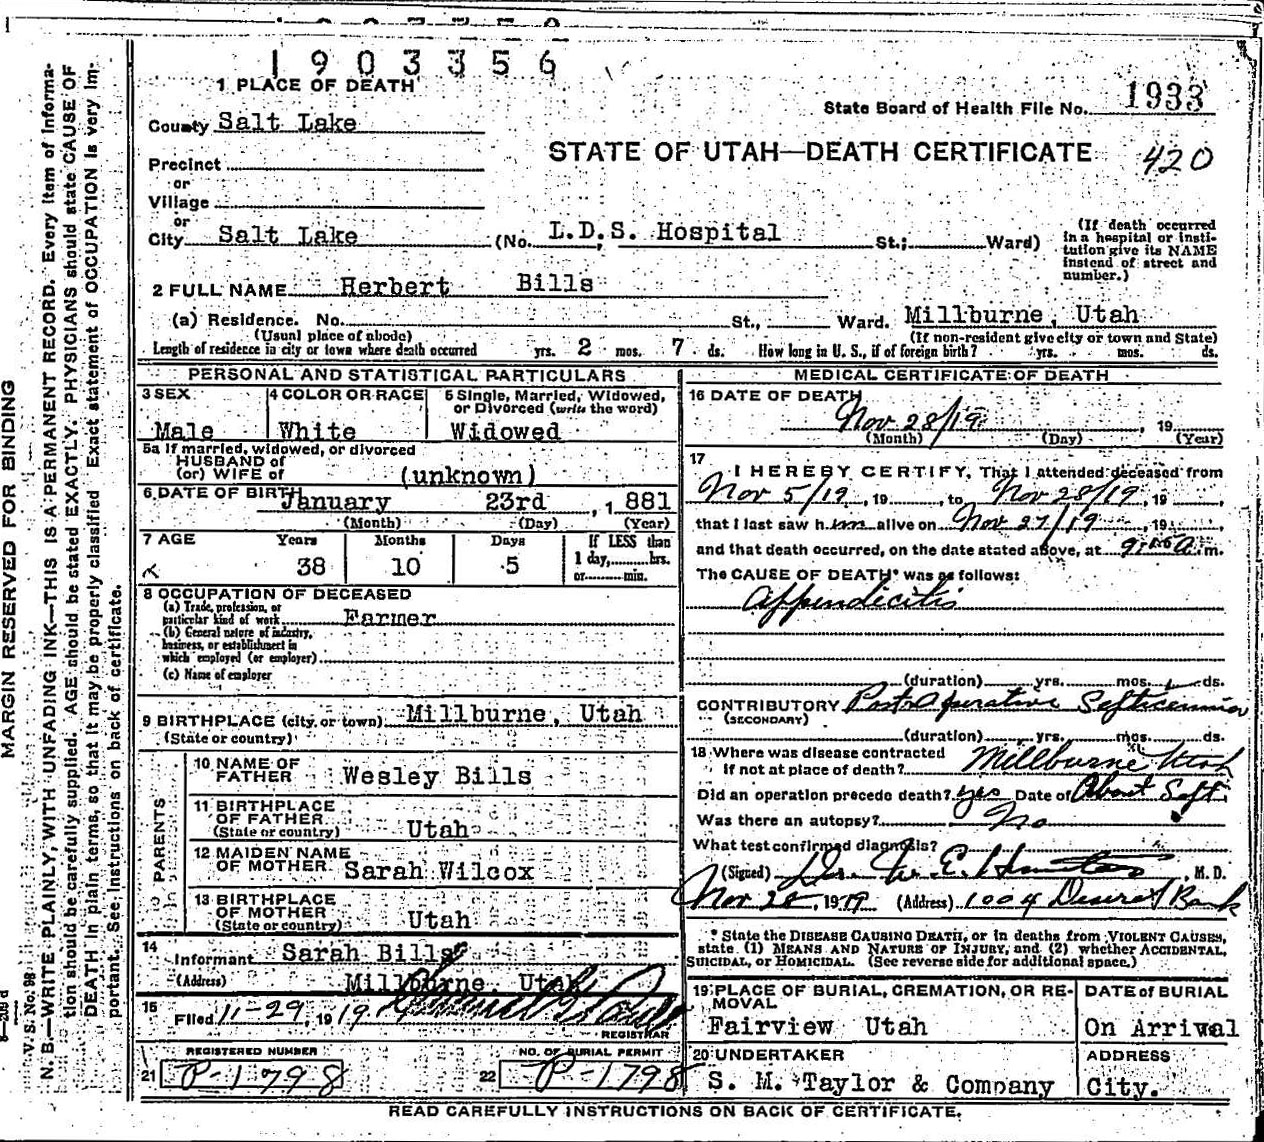 1903356
1 PLACE OF DEATH
State Board of Health File No. 1933
County Salt Lake
STATE OF UTAH—DEATH CERTIFICATE 420
Precinct
or
Village
or
City Salt Lake (No. L.D.S. Hospital St.; Ward)
(If death occurred
in a hospital or insti-
tution give its NAME
instead of street and
number.)
2 FULL NAME Herbert Bills
(a) Residence. No. St., Ward. Millburne, Utah
(Usual place of abode) (If non-resident give city or town and State)
Length of residence in city or town where death occurred yrs. 2 mos. 7 ds. How long in U. S., if of foreign birth? yrs. mos. ds.
PERSONAL AND STATISTICAL PARTICULARS
3 SEX
Male
4 COLOR OR RACE
White
5 Single, Married, Widowed,
or Divorced (write the word)
Widowed
5a If married, widowed, or divorced
HUSBAND of
(or) WIFE of (unknown)
6 DATE OF BIRTH January 23rd, 1881
(Month) (Day) (Year)
7 AGE Years Months Days If LESS than
1 day, hrs.
38 10 5 or min.
8 OCCUPATION OF DECEASED
(a) Trade, profession, or
particular kind of work Farmer
(b) General nature of industry,
business, or establishment in
which employed (or employer)
(c) Name of employer
9 BIRTHPLACE (city or town) Millburne, Utah
(State or country)
PARENTS
10 NAME OF
FATHER Wesley Bills
11 BIRTHPLACE
OF FATHER
(State or country) Utah
12 MAIDEN NAME
OF MOTHER Sarah Wilcox
13 BIRTHPLACE
OF MOTHER
(State or country) Utah
14
Informant Sarah Bills
(Address) Millburne, Utah
15
Filed 11-29, 1919
REGISTRAR
REGISTERED NUMBER
21 P-1798
NO. OF BURIAL PERMIT
22 P-1798
MEDICAL CERTIFICATE OF DEATH
16 DATE OF DEATH
Nov 28/19, 19
(Month) (Day) (Year)
17
I HEREBY CERTIFY, That I attended deceased from
Nov 5/19, 19, to Nov 28/19, 19,
that I last saw him alive on Nov 27/19, 19,
and that death occurred, on the date stated above, at a. m.
The CAUSE OF DEATH* was as follows:
Appendicitis
(duration) yrs. mos. ds.
CONTRIBUTORY Post Operative Septicemia
(SECONDARY)
(duration) yrs. mos. ds.
18 Where was disease contracted
if not at place of death? Millburne Utah
Did an operation precede death? yes Date of About Sept.
Was there an autopsy? No
What test confirmed diagnosis?
(Signed) Dr. M. D.
Nov 28, 1919 (Address) 1004 Deseret Bank
* State the DISEASE CAUSING DEATH, or in deaths from VIOLENT CAUSES,
state (1) MEANS AND NATURE OF INJURY, and (2) whether ACCIDENTAL,
SUICIDAL, or HOMICIDAL. (See reverse side for additional space.)
19 PLACE OF BURIAL, CREMATION, OR RE-
MOVAL
Fairview Utah
DATE of BURIAL
On Arriwal
20 UNDERTAKER
S. M. Taylor & Company
ADDRESS
City.
READ CAREFULLY INSTRUCTIONS ON BACK OF CERTIFICATE.
MARGIN RESERVED FOR BINDING
V. S. No. 98
N. B.—WRITE PLAINLY, WITH UNFADING INK—THIS IS A PERMANENT RECORD. Every item of informa-
tion should be carefully supplied. AGE should be stated EXACTLY. PHYSICIANS should state CAUSE OF
DEATH in plain terms, so that it may be properly classified. Exact statement of OCCUPATION is very im-
portant. See instructions on back of certificate.